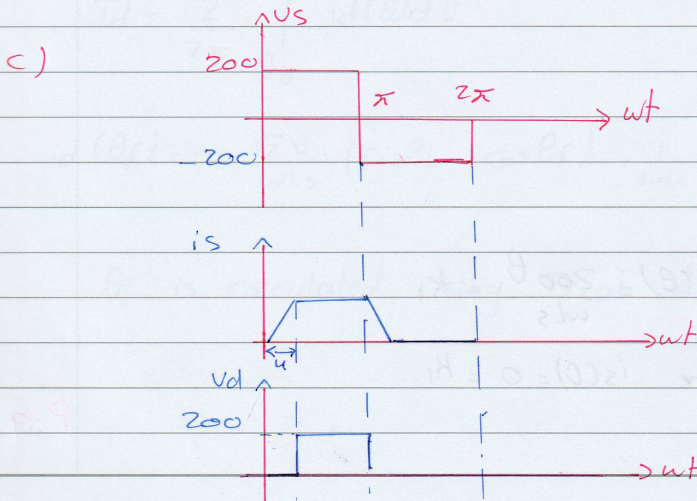 c)
vs
200
π
2π
wt
-200
is
wt
u
Vd
200
wt